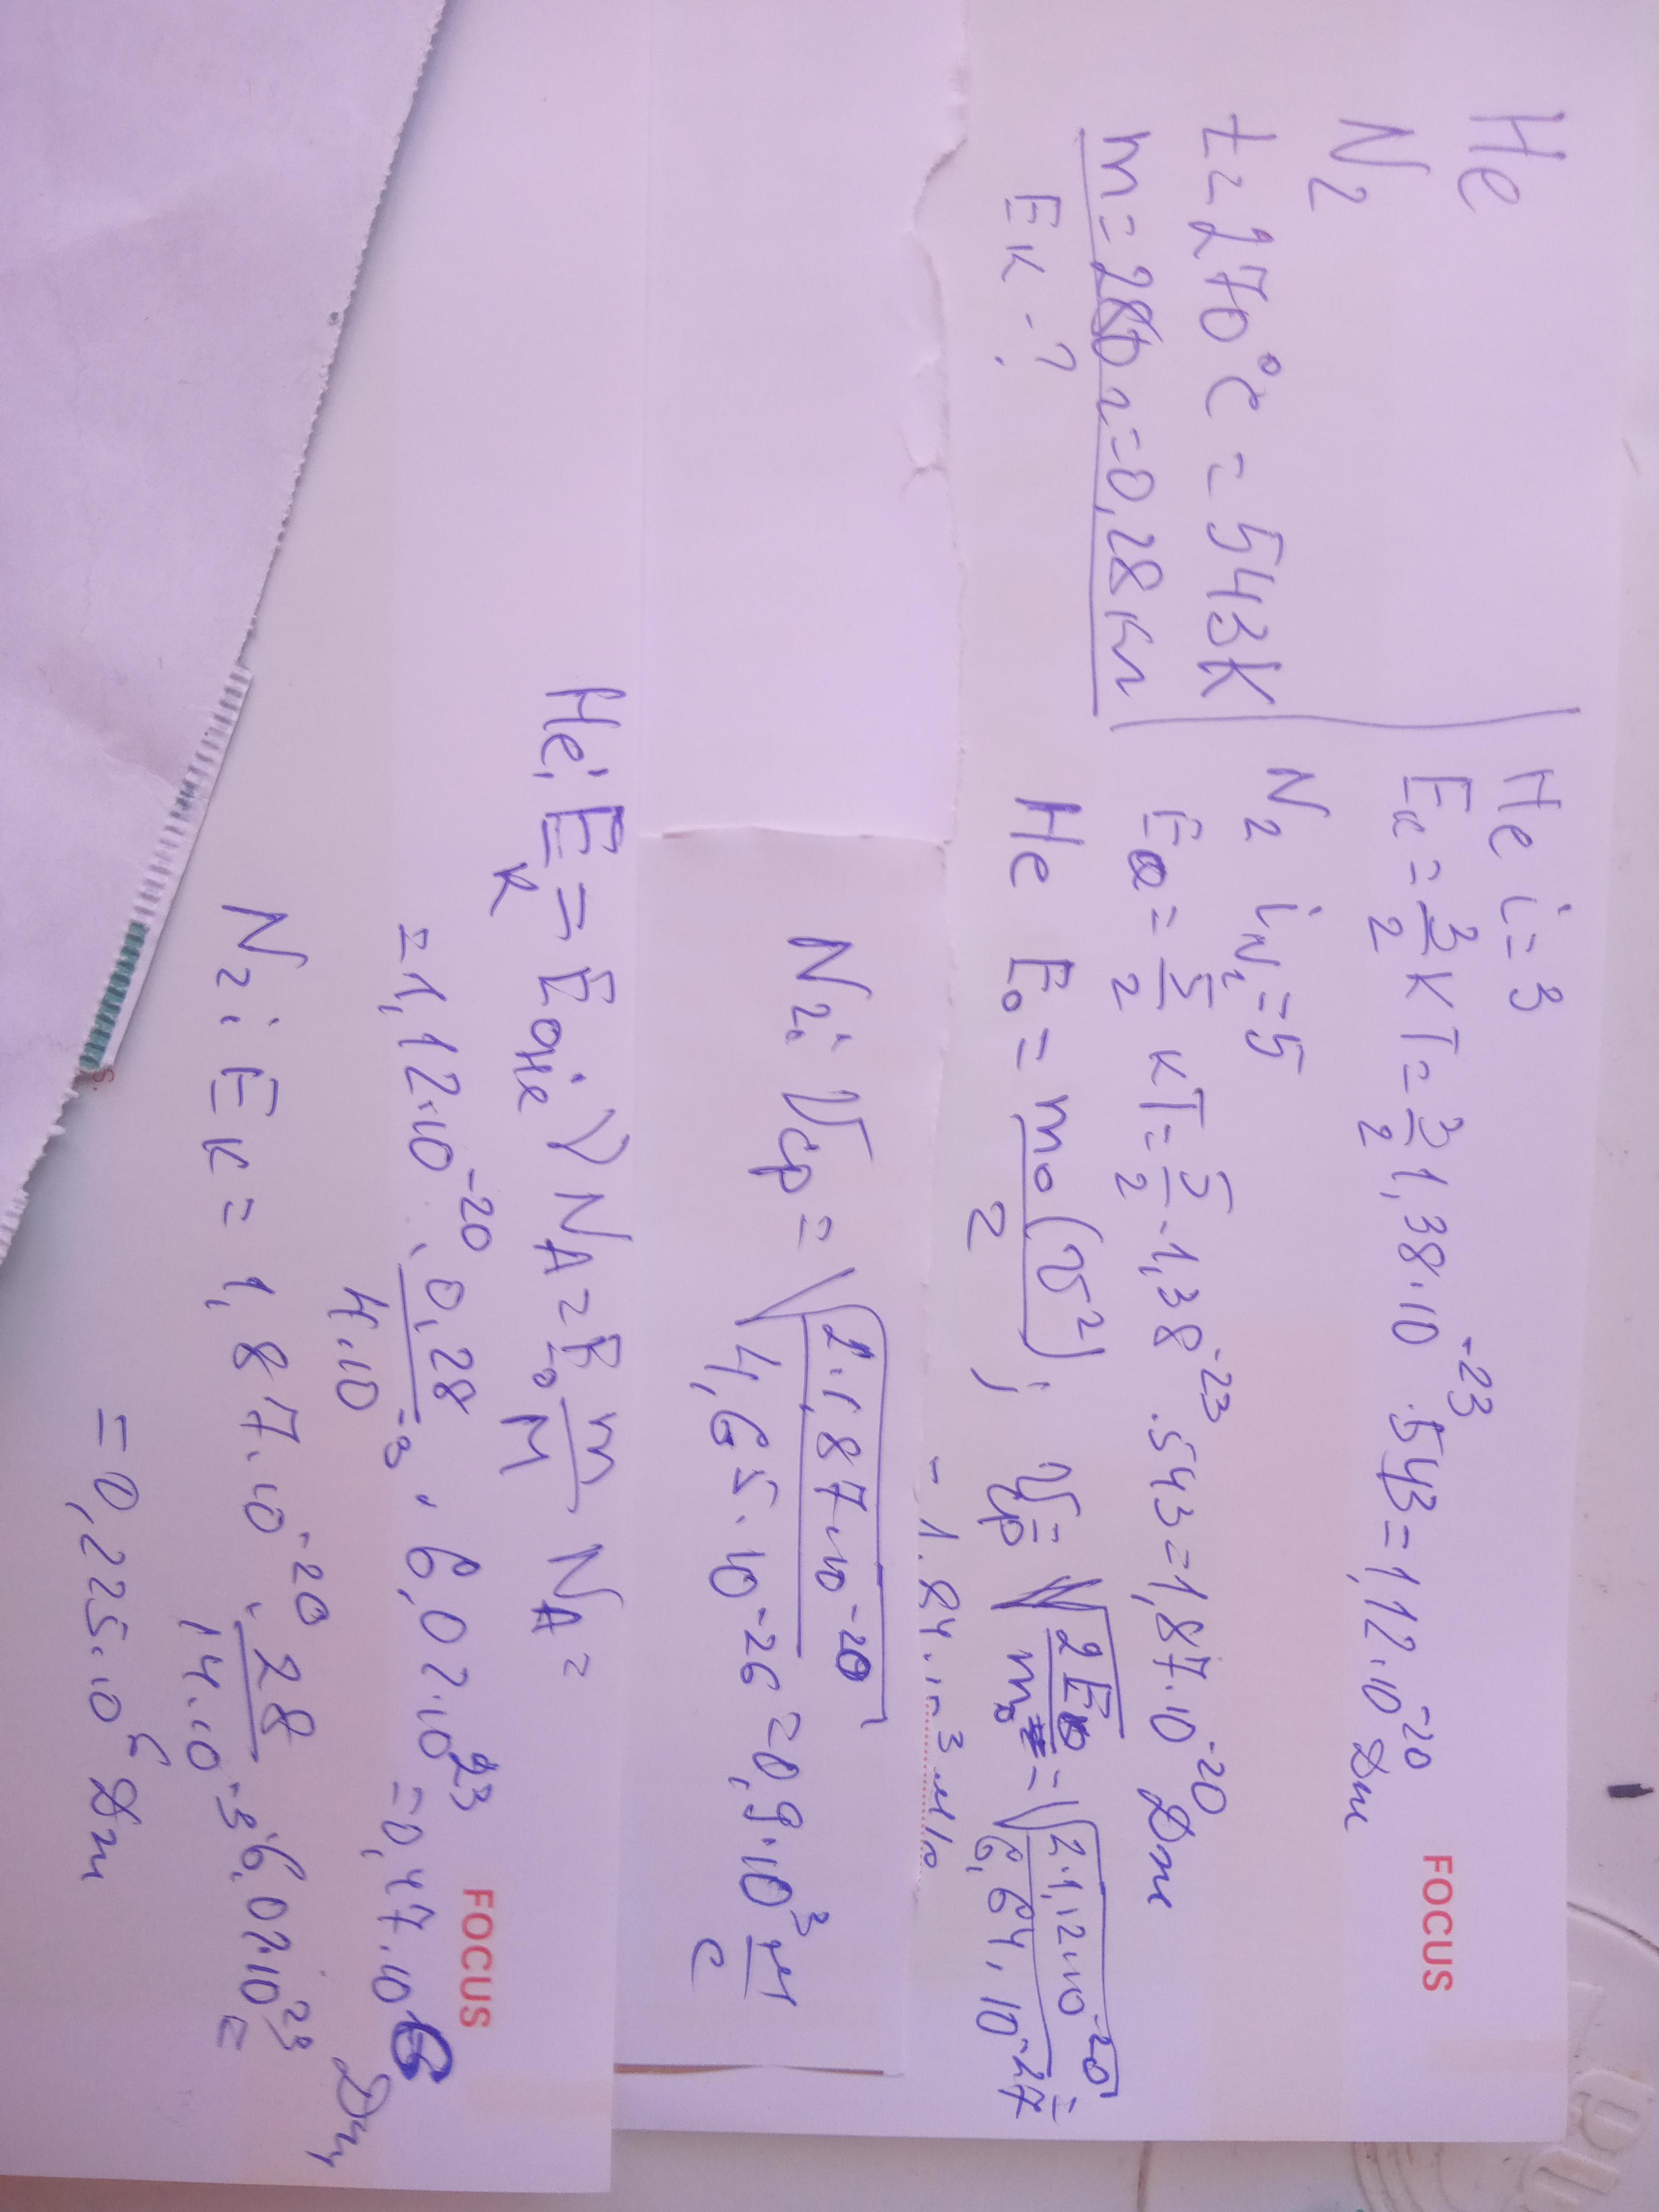 He
N₂
t = 270°C = 543K
m = 280 г = 0,28 кг
Eк - ?
He i = 3
Eк = 3/2 кT = 3/2 1,38·10⁻²³ · 543 = 1,12·10⁻²⁰ Дж
N₂ i N₂ = 5
E = 5/2 кT = 5/2 · 1,38⁻²³ · 543 = 1,87·10⁻²⁰ Дж
He E₀ = m₀(v²)/2 ; vср = √(2E₀/m₀) = √(2·1,12·10⁻²⁰/6,64·10⁻²⁷) =
= 1.84·10³ м/с
N₂: vср = √(2·1,87·10⁻²⁰/4,65·10⁻²⁶) = 0,9·10³ м/с
He: Eк = E₀Не ν NA = E₀ m/M NA =
= 1,12·10⁻²⁰ · 0,28/4·10⁻³ · 6,02·10²³ = 0,47·10⁶ Дж,
N₂: Eк = 1,87·10⁻²⁰ · 28/14·10⁻³ · 6,02·10²³ =
= 0,225·10⁶ Дж
FOCUS
FOCUS